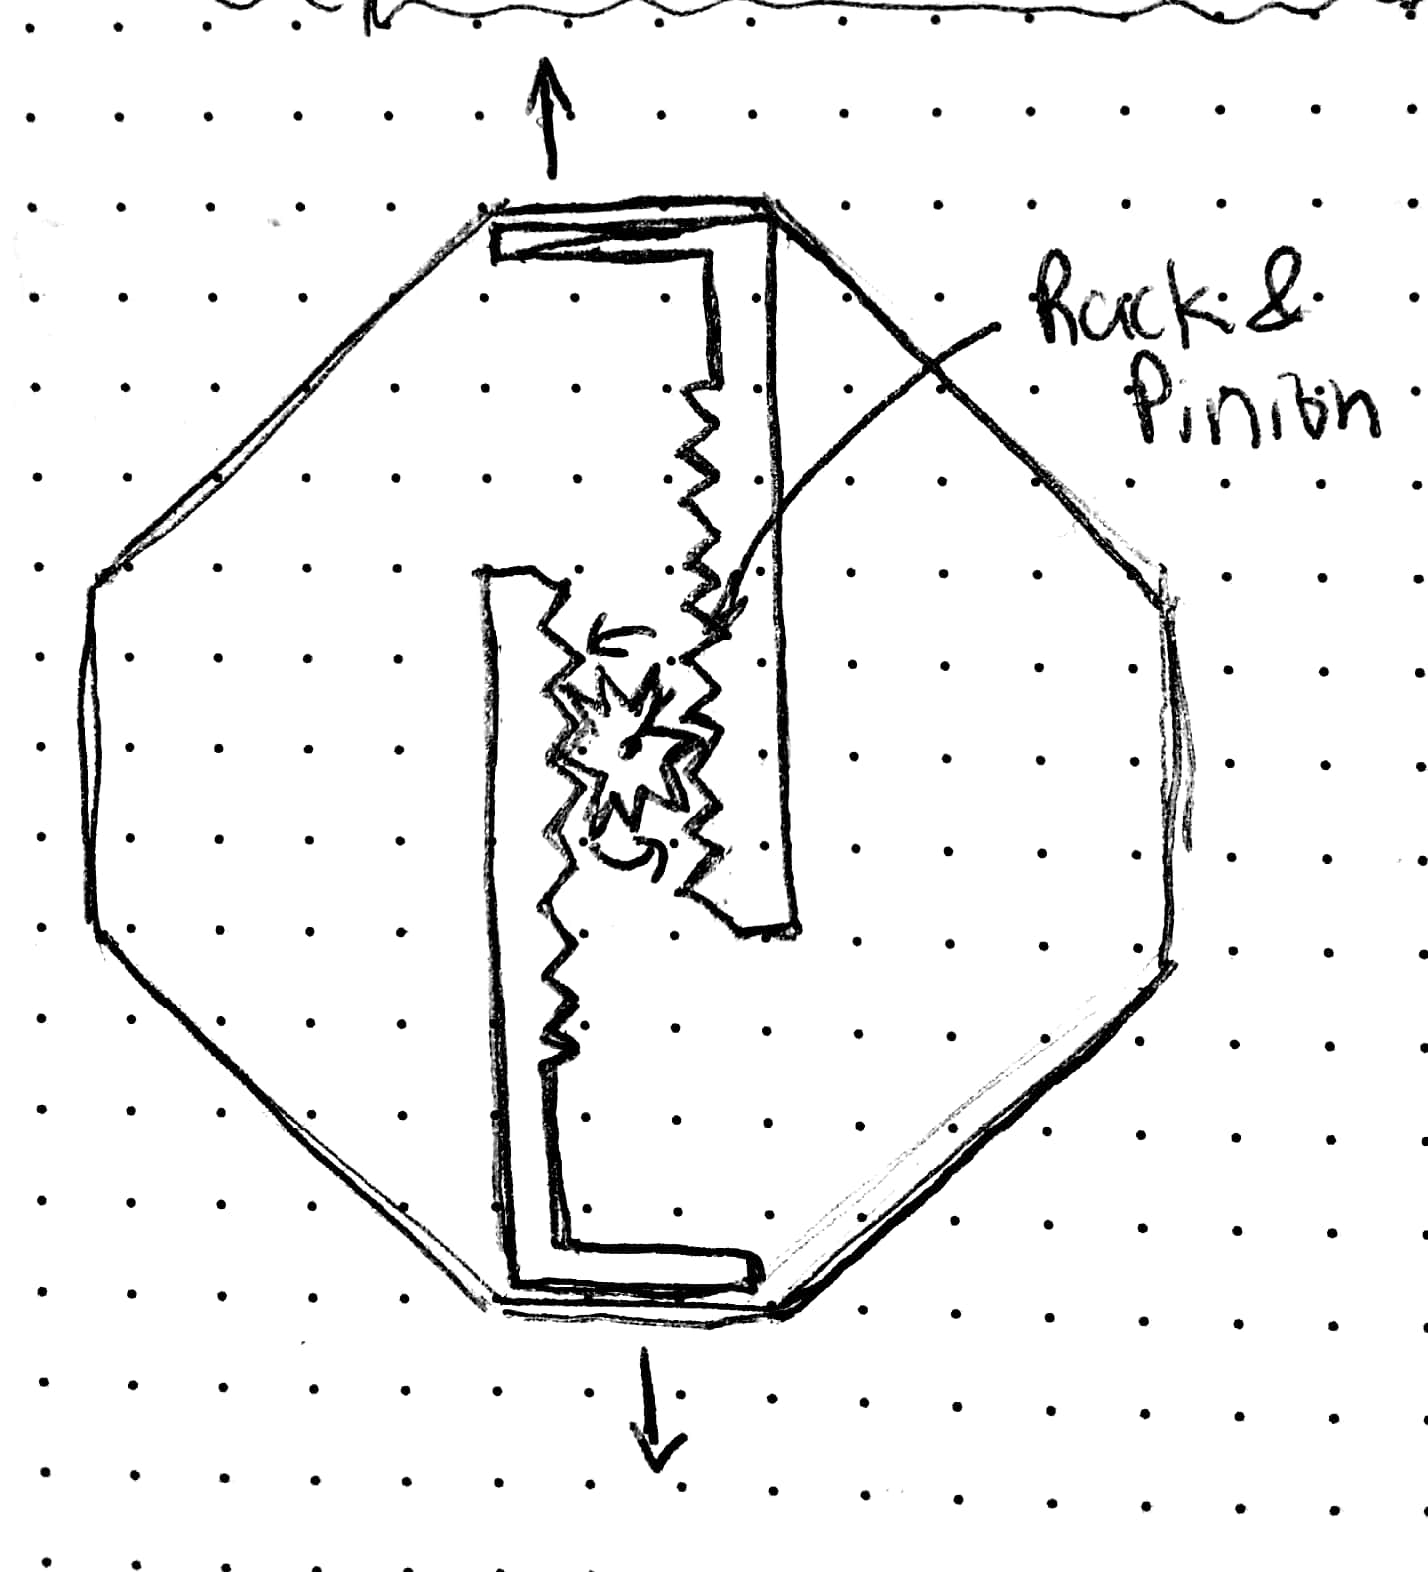 Rack &
Pinion